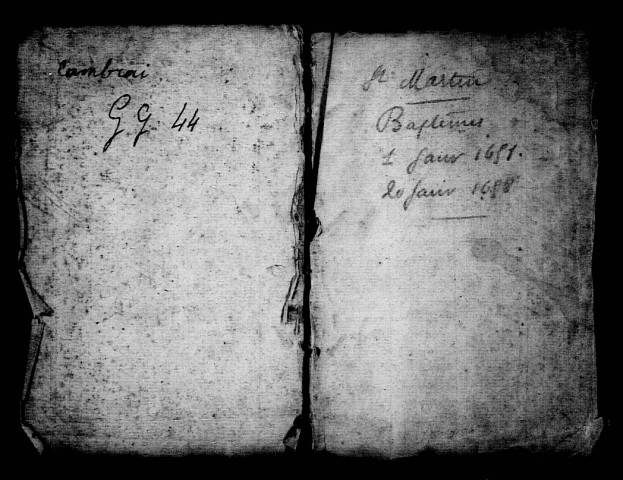 Cambrai
GG 44
St Martin
Baptêmes
1 Janv 1651.
20 Janv 1658